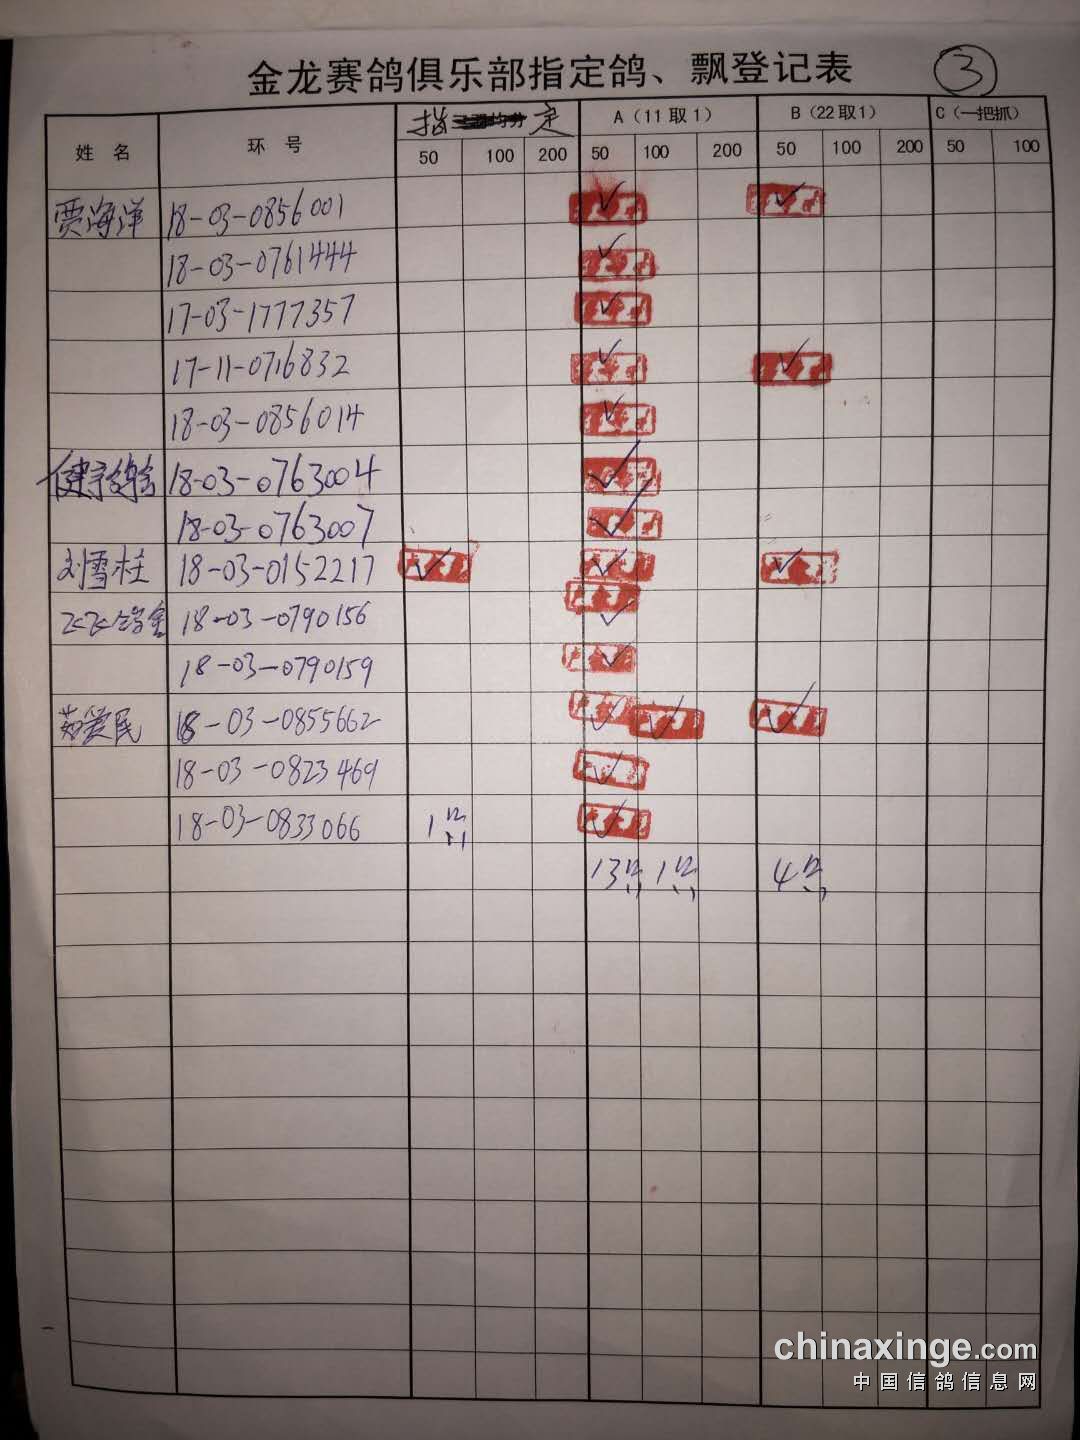 金龙赛鸽俱乐部指定鸽、飘登记表 ③
姓名 环号 指定 A（11取1） B（22取1） C（一把抓）
50 100 200 50 100 200 50 100 200 50 100
贾海洋 18-03-0856001 ✓ ✓
18-03-0761444 ✓
17-03-1777357 ✓
17-11-0716832 ✓ ✓
18-03-0856014 ✓
18-03-0763004 ✓
18-03-0763007 ✓
刘雪柱 18-03-0152217 ✓ ✓ ✓
18-03-0790156 ✓
18-03-0790159 ✓
茹爱民 18-03-0855662 ✓ ✓ ✓
18-03-0823469 ✓
18-03-0833066 1羽 ✓
13羽 1羽 4羽
chinaxinge.com
中国信鸽信息网